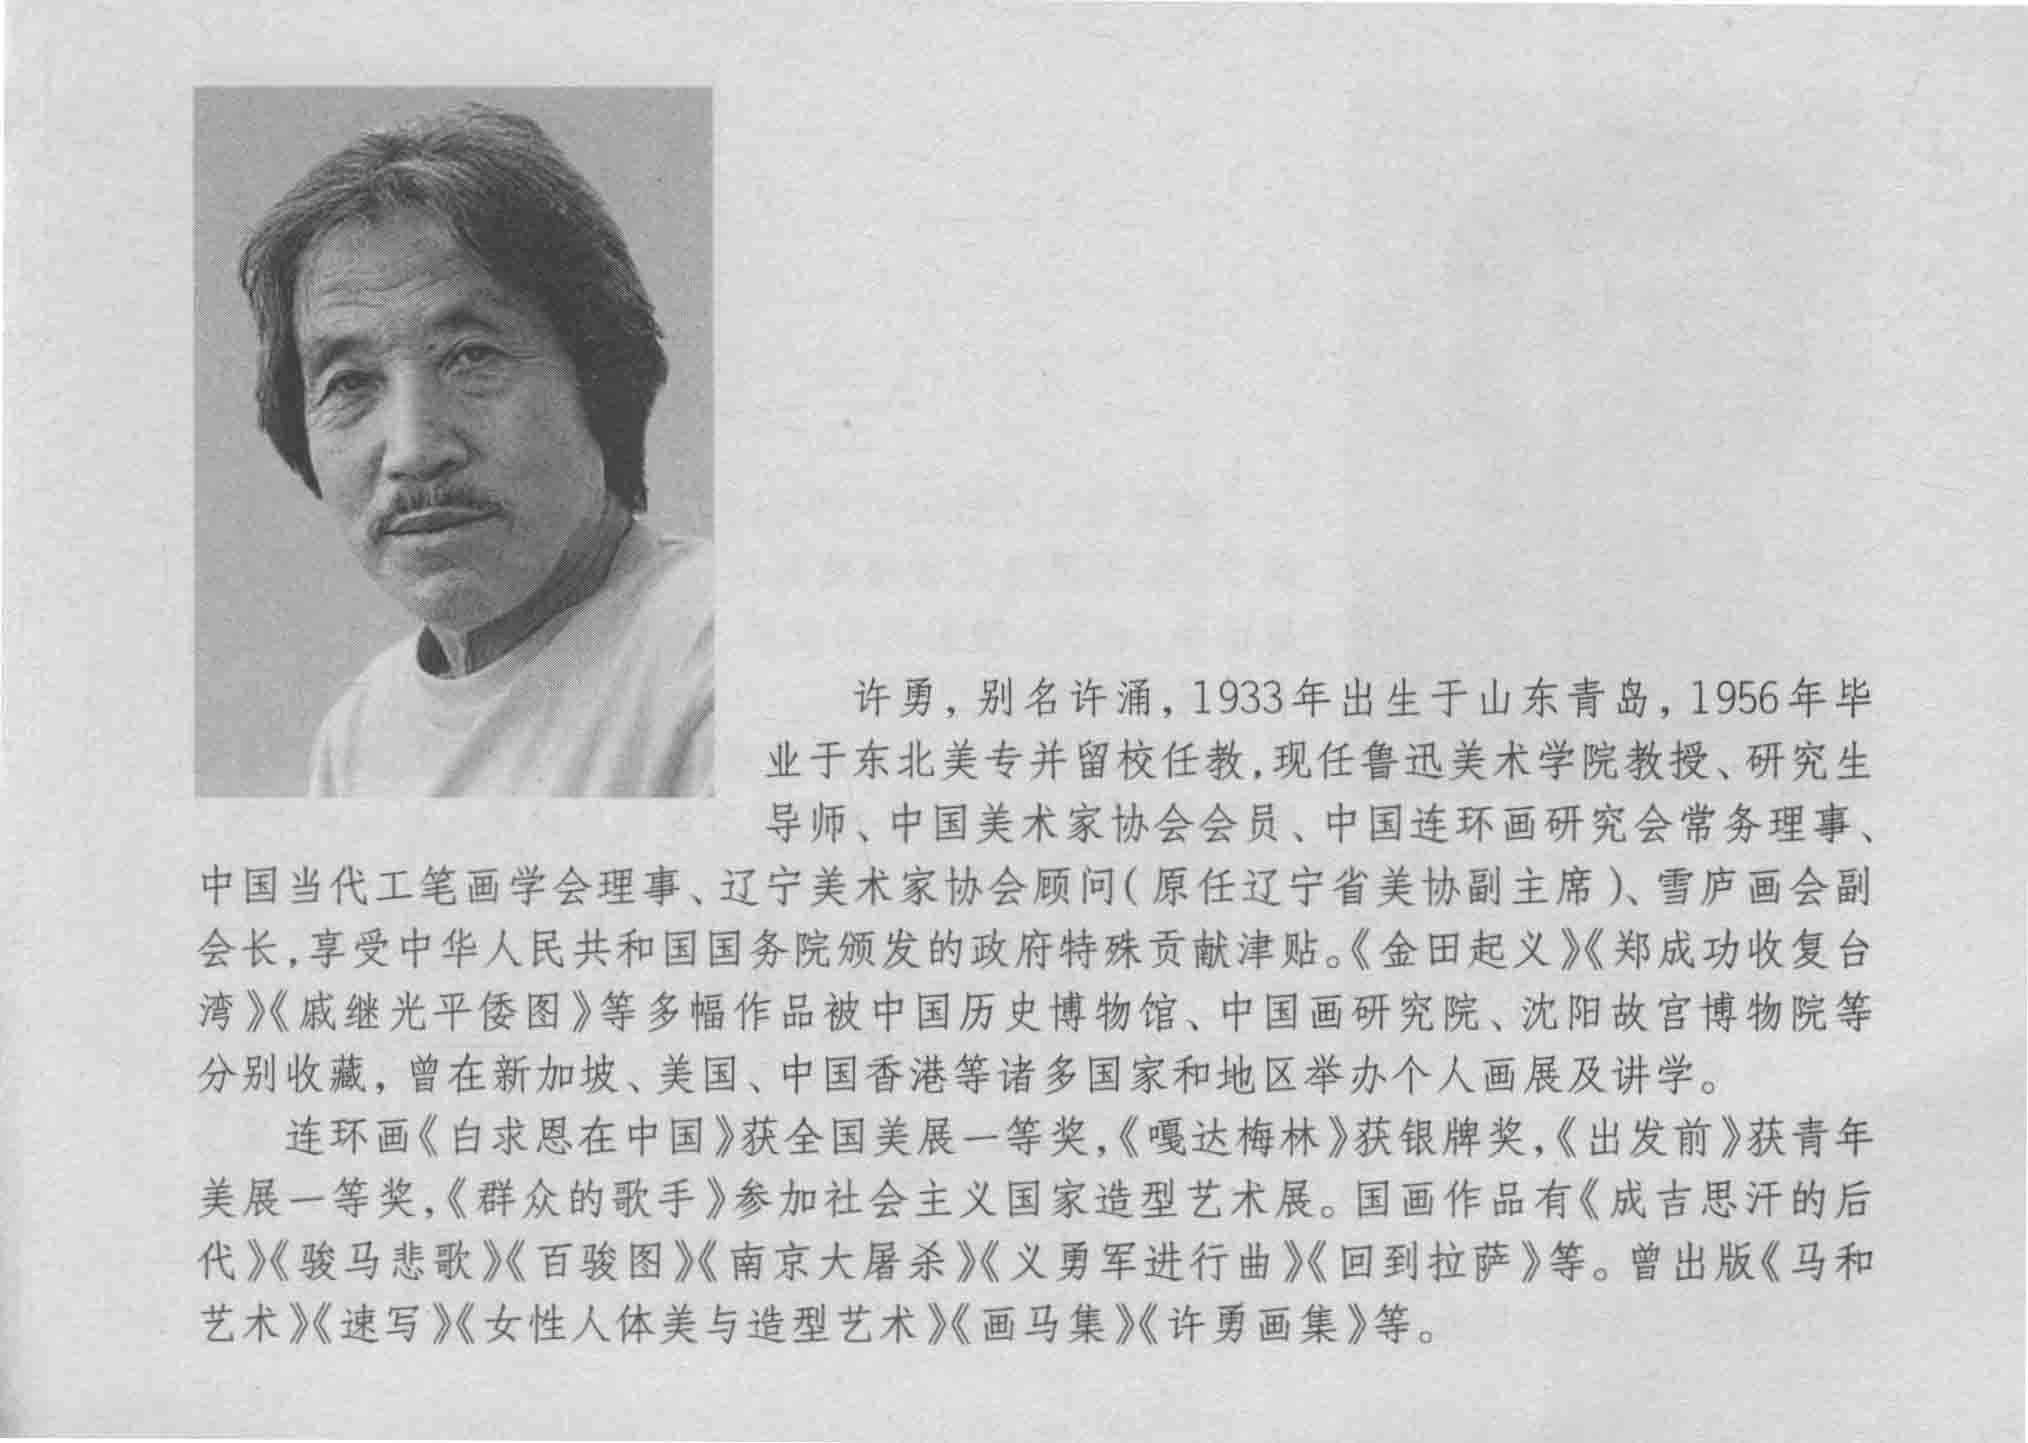 许勇，别名许涌，1933年出生于山东青岛，1956年毕
业于东北美专并留校任教，现任鲁迅美术学院教授、研究生
导师、中国美术家协会会员、中国连环画研究会常务理事、
中国当代工笔画学会理事、辽宁美术家协会顾问（原任辽宁省美协副主席）、雪庐画会副
会长，享受中华人民共和国国务院颁发的政府特殊贡献津贴。《金田起义》《郑成功收复台
湾》《戚继光平倭图》等多幅作品被中国历史博物馆、中国画研究院、沈阳故宫博物院等
分别收藏，曾在新加坡、美国、中国香港等诸多国家和地区举办个人画展及讲学。
连环画《白求恩在中国》获全国美展一等奖，《嘎达梅林》获银牌奖，《出发前》获青年
美展一等奖，《群众的歌手》参加社会主义国家造型艺术展。国画作品有《成吉思汗的后
代》《骏马悲歌》《百骏图》《南京大屠杀》《义勇军进行曲》《回到拉萨》等。曾出版《马和
艺术》《速写》《女性人体美与造型艺术》《画马集》《许勇画集》等。